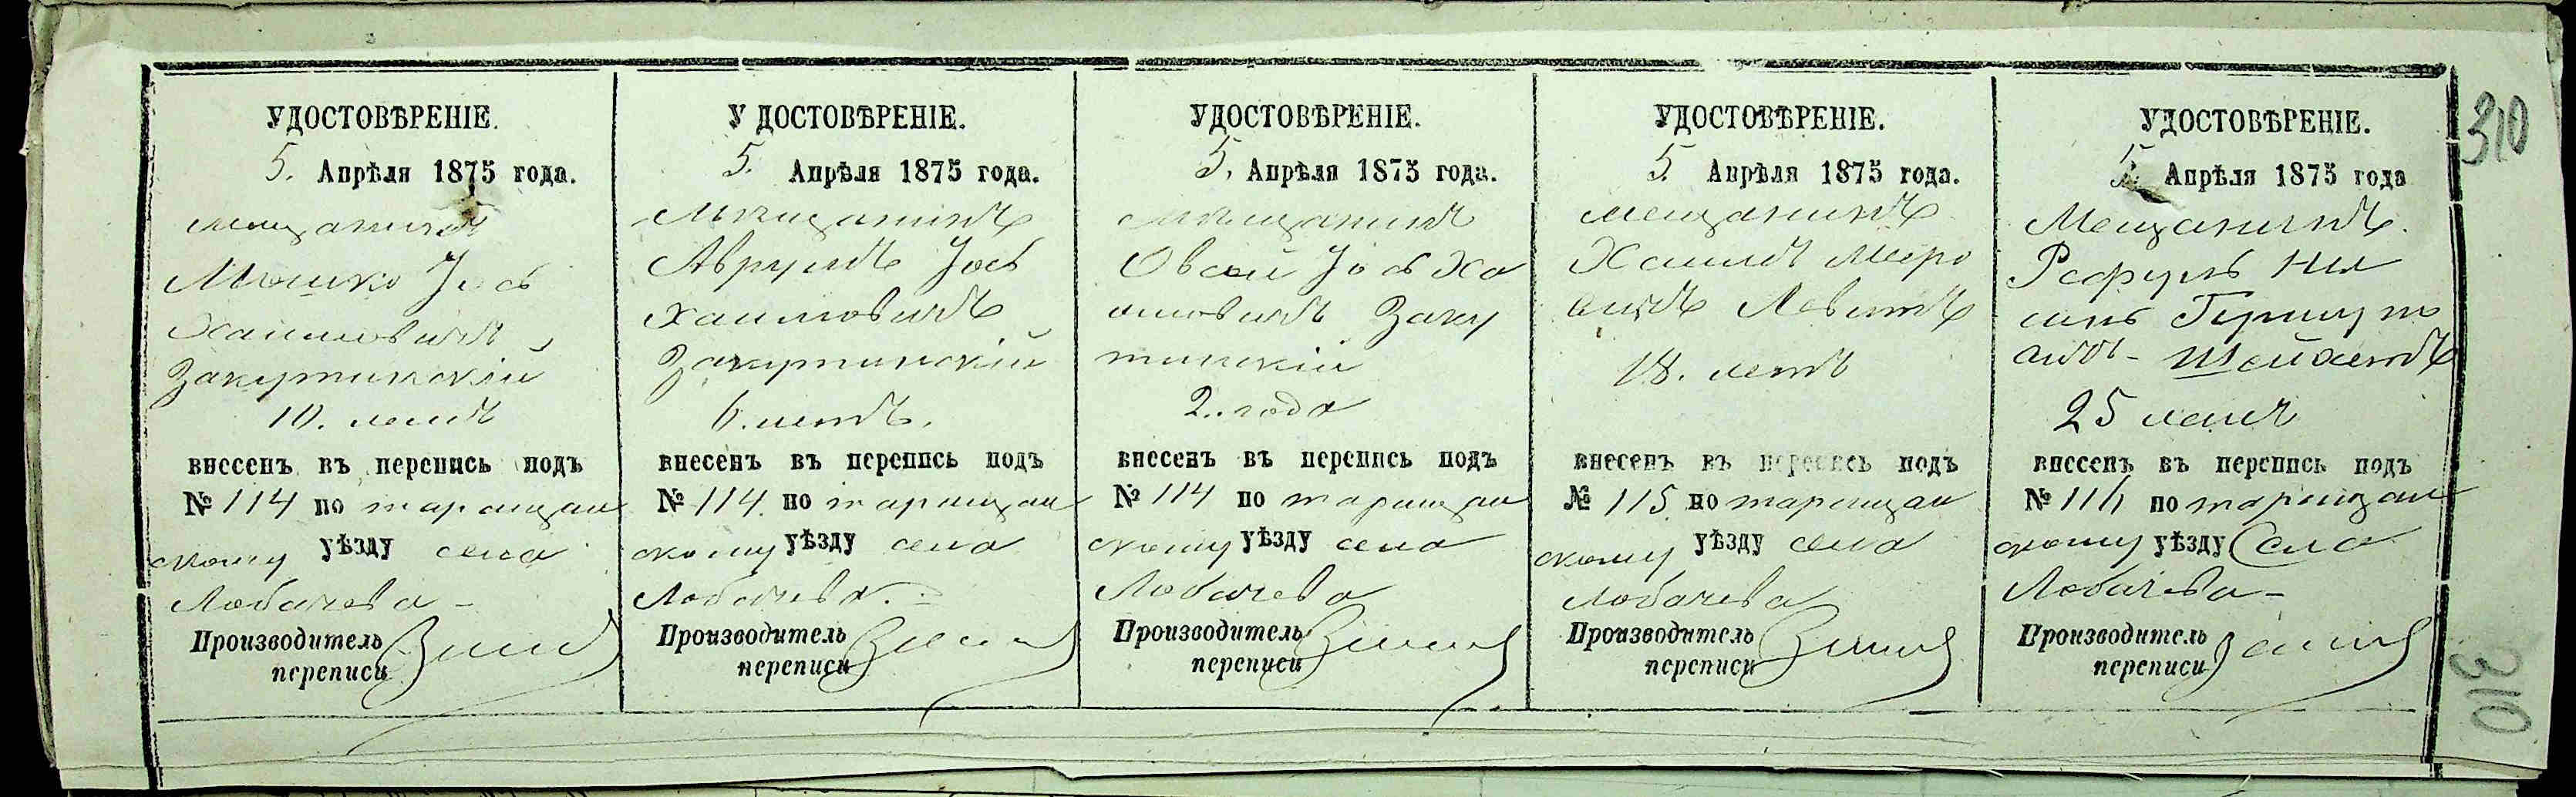 УДОСТОВѢРЕНІЕ.
5. Апрѣля 1875 года.
мещанинъ
Мошко Іось
Хаимовичъ
Закутинскій
10. летъ
внесенъ въ перепись подъ
№ 114 по таращан
скому уѣзду села
Лобачева -
Производитель
переписи
У ДОСТОВѢРЕНІЕ.
5. Апрѣля 1875 года.
Мѣщанинъ
Аврумъ Іось
Хаимовичъ
Закутинскій
6. летъ.
внесенъ въ перепись подъ
№ 114. по таращан
скому уѣзду села
Лобачева. -
Производитель
переписи
УДОСТОВѢРЕНІЕ.
5. Апрѣля 1875 года.
мѣщанинъ
Овсей Іось Ха
имовичъ Заку
тинскій
2. года
внесенъ въ перепись подъ
№ 114 по таращан
скому уѣзду села
Лобачева
Производитель
переписи
УДОСТОВѢРЕНІЕ.
5. Апрѣля 1875 года.
мещанинъ
Хаимъ Меро
вичъ Левитъ
18. летъ
внесенъ въ перепись подъ
№ 115 по таращан
скому уѣзду села
Лобачева
Производитель
переписи
УДОСТОВѢРЕНІЕ.
5. Апрѣля 1875 года
Мещанинъ.
Рефуль
Шейхетъ
25 летъ
внесенъ въ перепись подъ
№ 116 по таращан
скому уѣзду Села
Лобачева -
Производитель
переписи
310
310